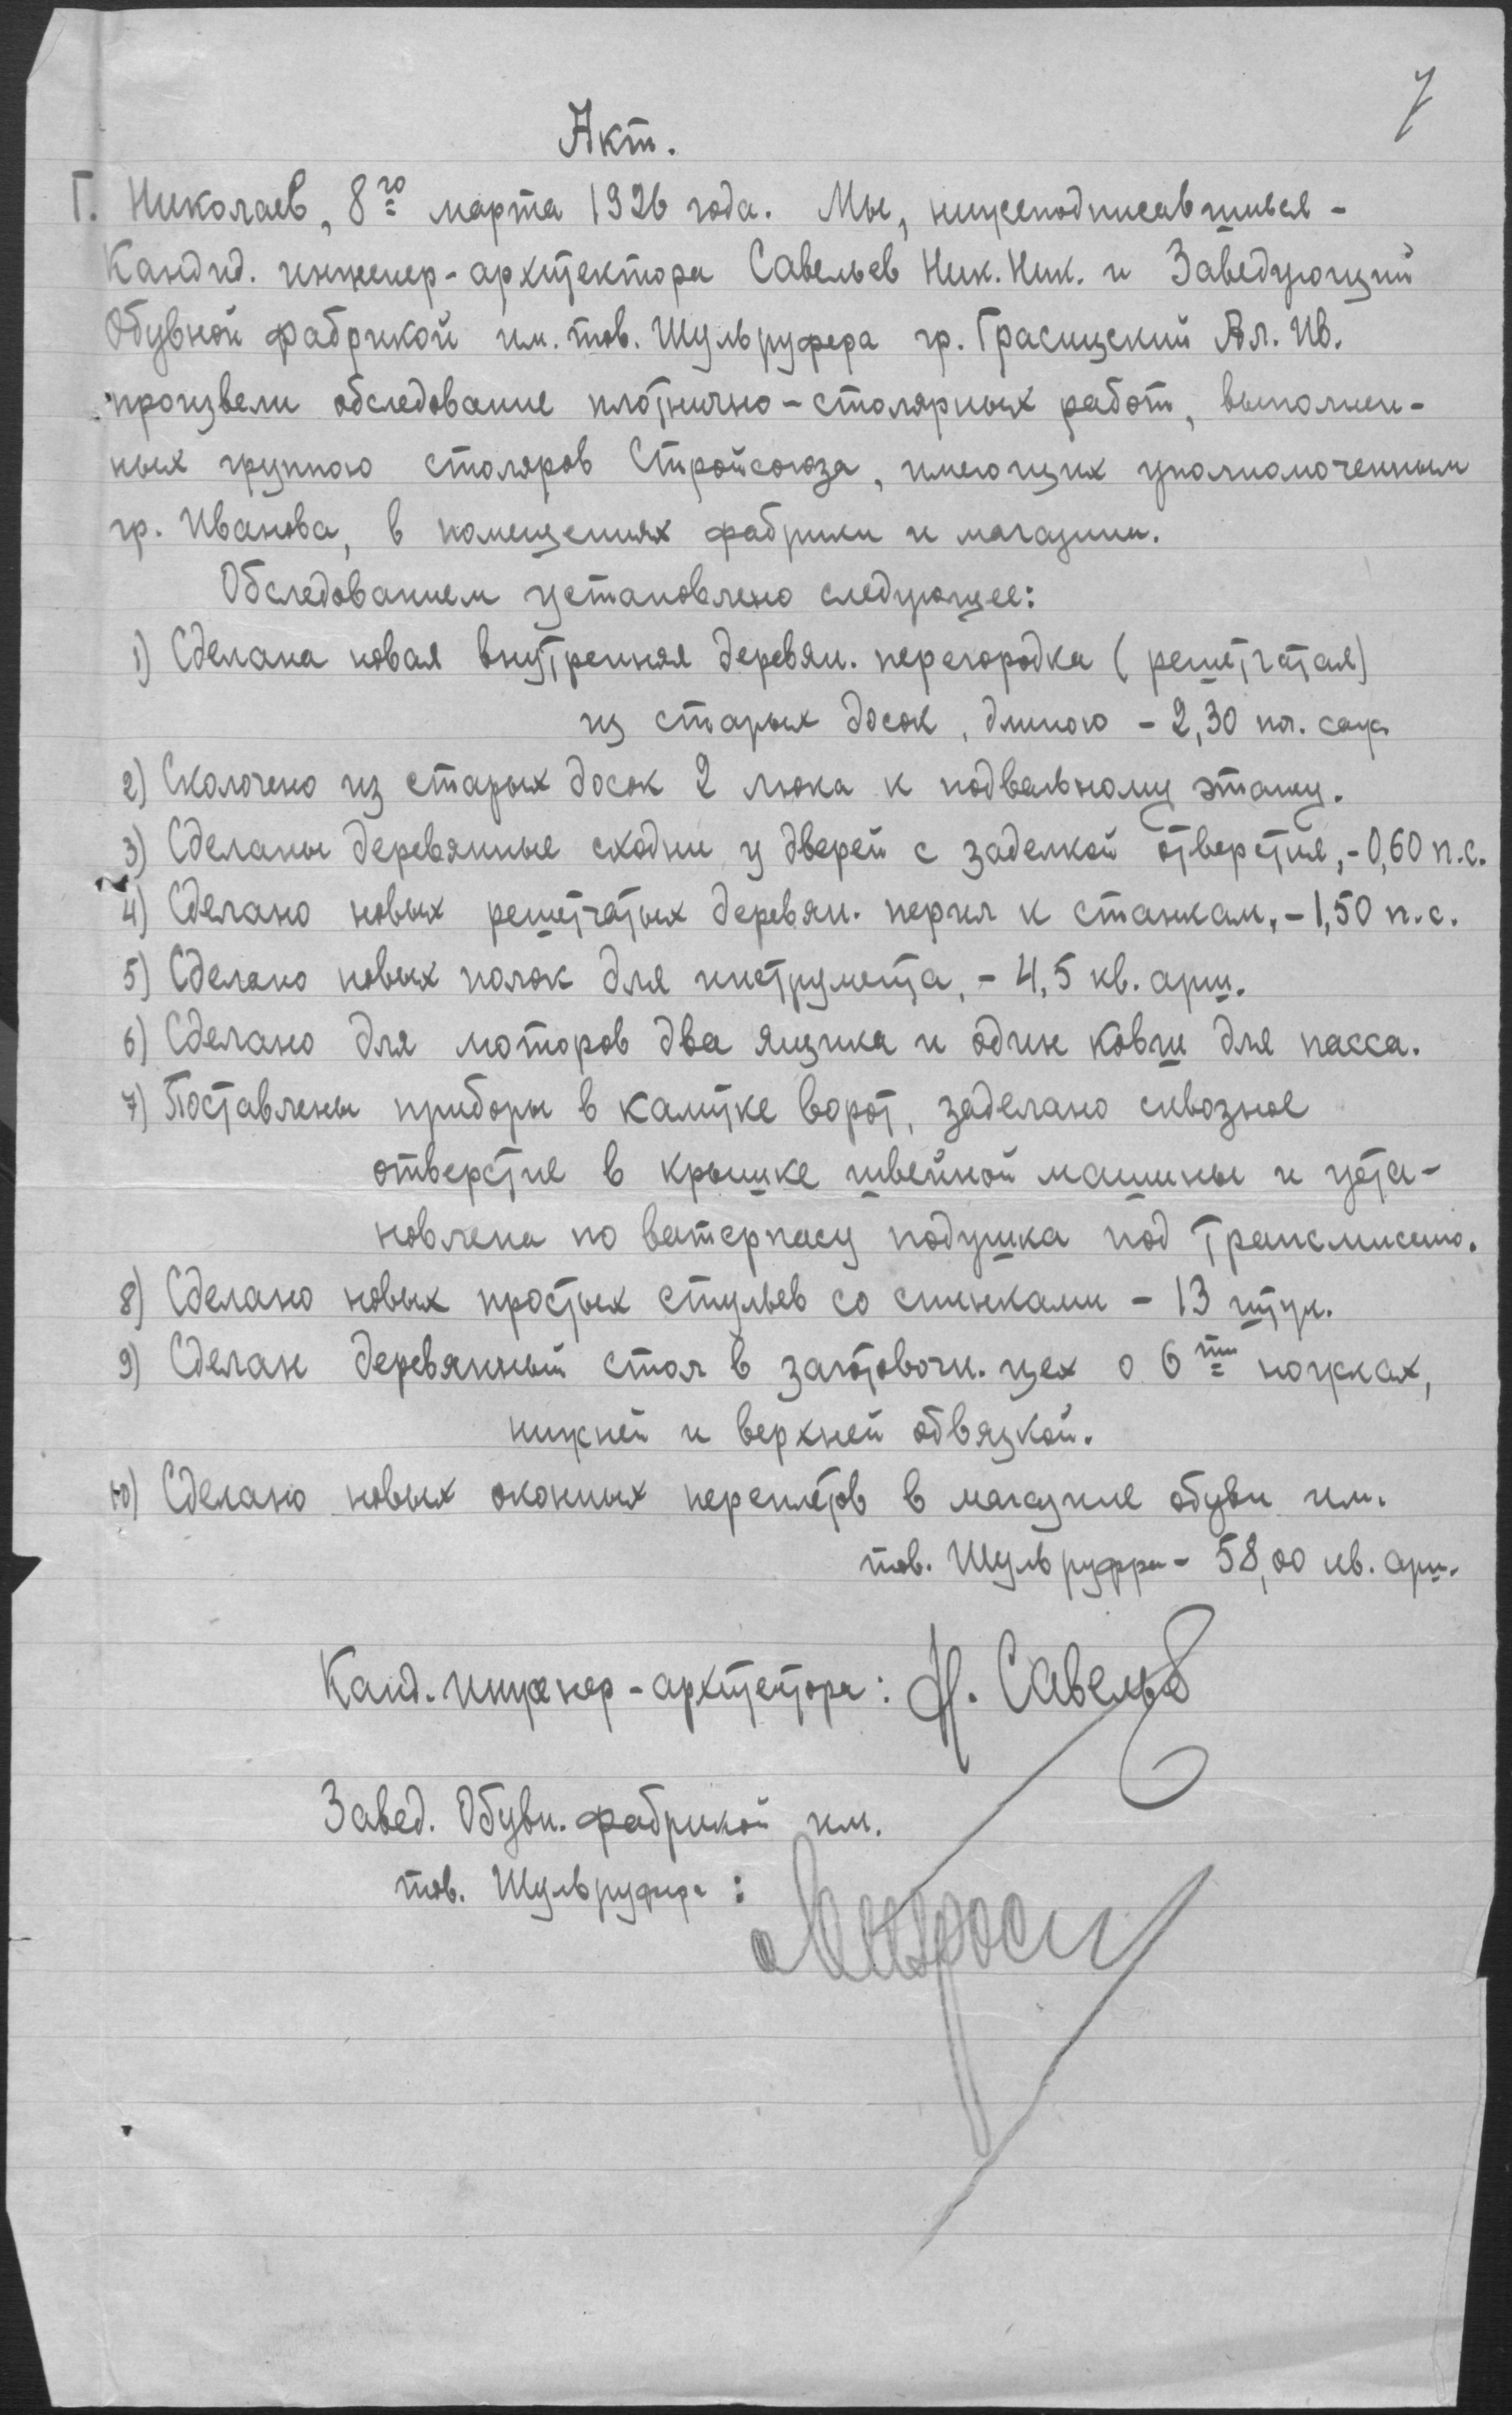 7
Акт.
Г. Николаев, 8го марта 1926 года. Мы, нижеподписавшиеся -
Кандид. инженер-архитектора Савельев Ник. Ник. и Заведующий
Обувной фабрикой им. тов. Шульруфера гр. Ив.
произвели обследование плотнично-столярных работ, выполнен-
ных группою столяров Стройсоюза, имеющих уполномоченным
гр. Иванова, в помещениях фабрики и магазина.
Обследованием установлено следующее:
1) Сделана новая внутренняя деревян. перегородка (решетчатая)
из старых досок, длиною - 2,30 пог. саж.
2) Сколочено из старых досок 2 люка к подвальному этажу.
3) Сделаны деревянные сходни у дверей с заделкой отверстия, - 0,60 п.с.
4) Сделано новых решетчатых деревян. перил к станкам, - 1,50 п.с.
5) Сделано новых полок для инструмента, - 4,5 кв. арш.
6) Сделано для моторов два ящика и один ковш для пасса.
7) Поставлены приборы в калитке ворот, заделано сквозное
отверстие в крышке швейной машины и уста-
новлена по ватерпасу подушка под трансмиссию.
8) Сделано новых простых стульев со спинками - 13 штук.
9) Сделан деревянный стол в заготовочн. цех о 6ти ножках,
нижней и верхней обвязкой.
10) Сделано новых оконных переплетов в магазине обуви им.
тов. Шульруфера - 58,00 кв. арш.
Канд. инженер-архитектора: Н. Савельев
Завед. Обувн. фабрикой им.
тов. Шульруфера: